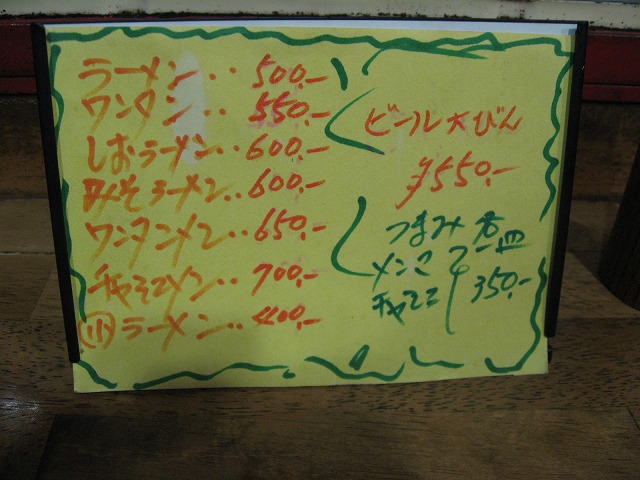 ラーメン‥500.-
ワンタン‥550.-
しおラーメン‥600.-
みそラーメン‥600.-
ワンタンメン‥650.-
チャーシューメン‥700.-
小ラーメン‥400.-
ビール大びん
¥550.-
つまみ各
一皿
メンマ
チャーシュー
350.-